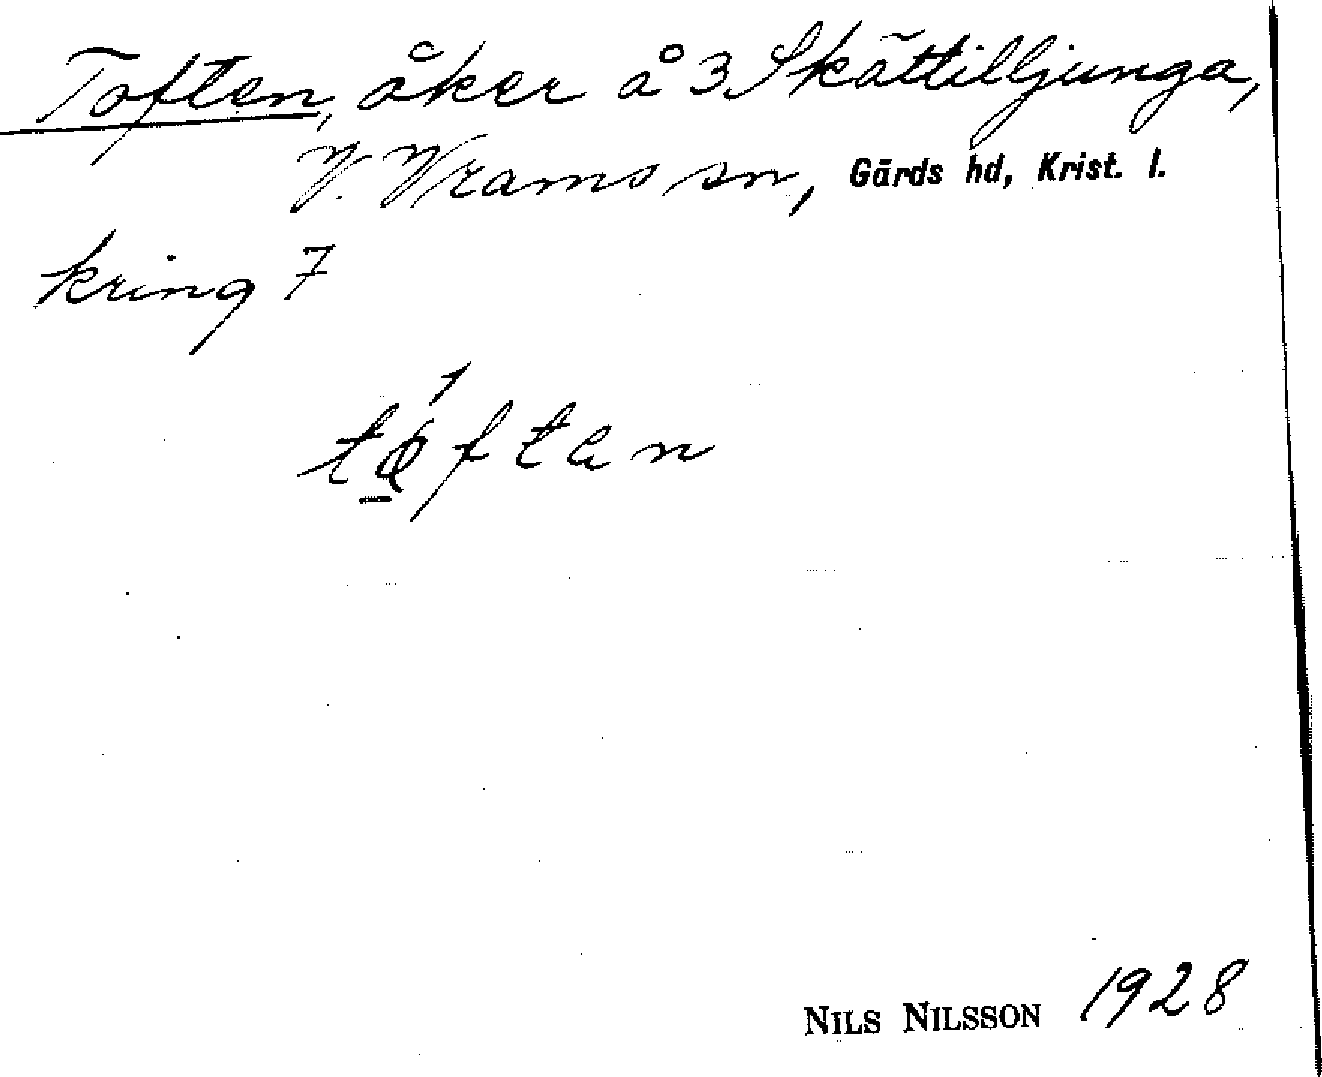 Toften, åker å 3 Skättilljunga,
V. Vrams sn, Gärds hd, Krist. l.
kring 7
NILS NILSSON 1928